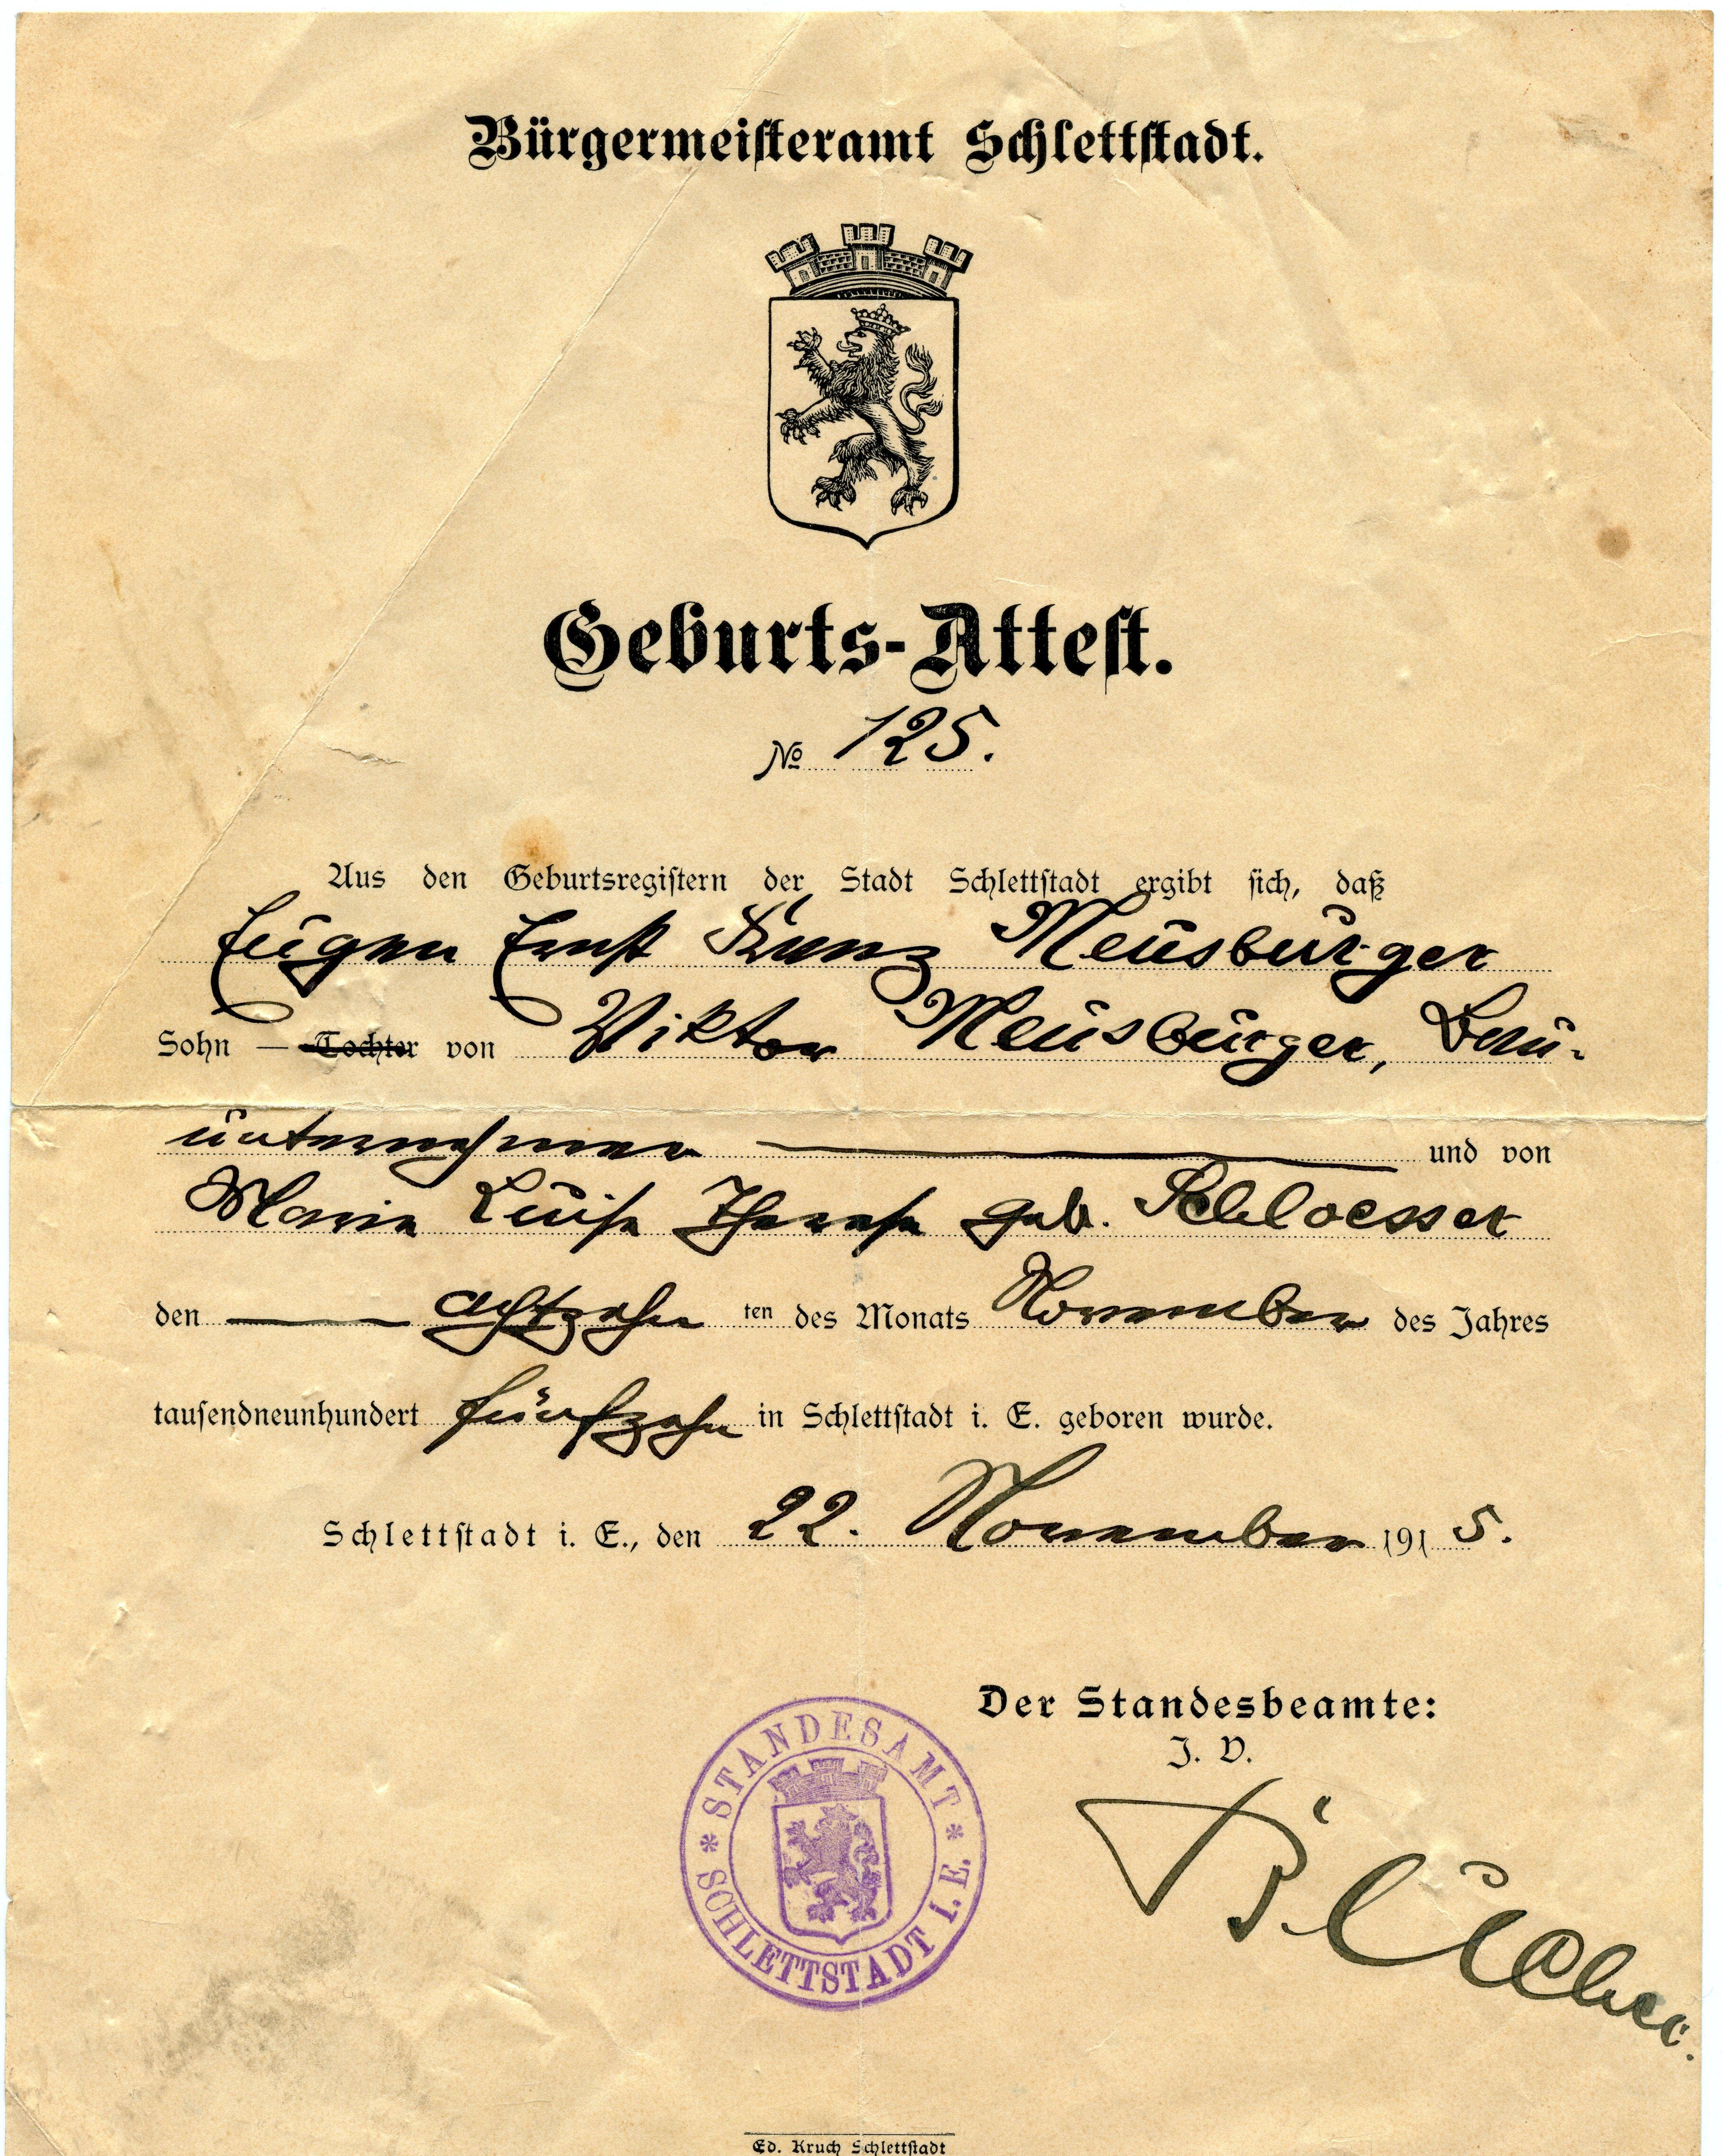 Bürgermeisteramt Schlettstadt.
Geburts-Attest.
№ 125.
Aus den Geburtsregistern der Stadt Schlettstadt ergibt sich, daß
Eugen Ernst Franz Neusburger
Sohn — Tochter von Viktor Neusburger, Bau-
unternehmer und von
Maria Luise Therese geb. Schloesser
den achtzehn ten des Monats November des Jahres
tausendneunhundert fünfzehn in Schlettstadt i. E. geboren wurde.
Schlettstadt i. E., den 22. November 1915.
Der Standesbeamte:
J. V.
* STANDESAMT *
SCHLETTSTADT i. E.
Ed. Kruch Schlettstadt